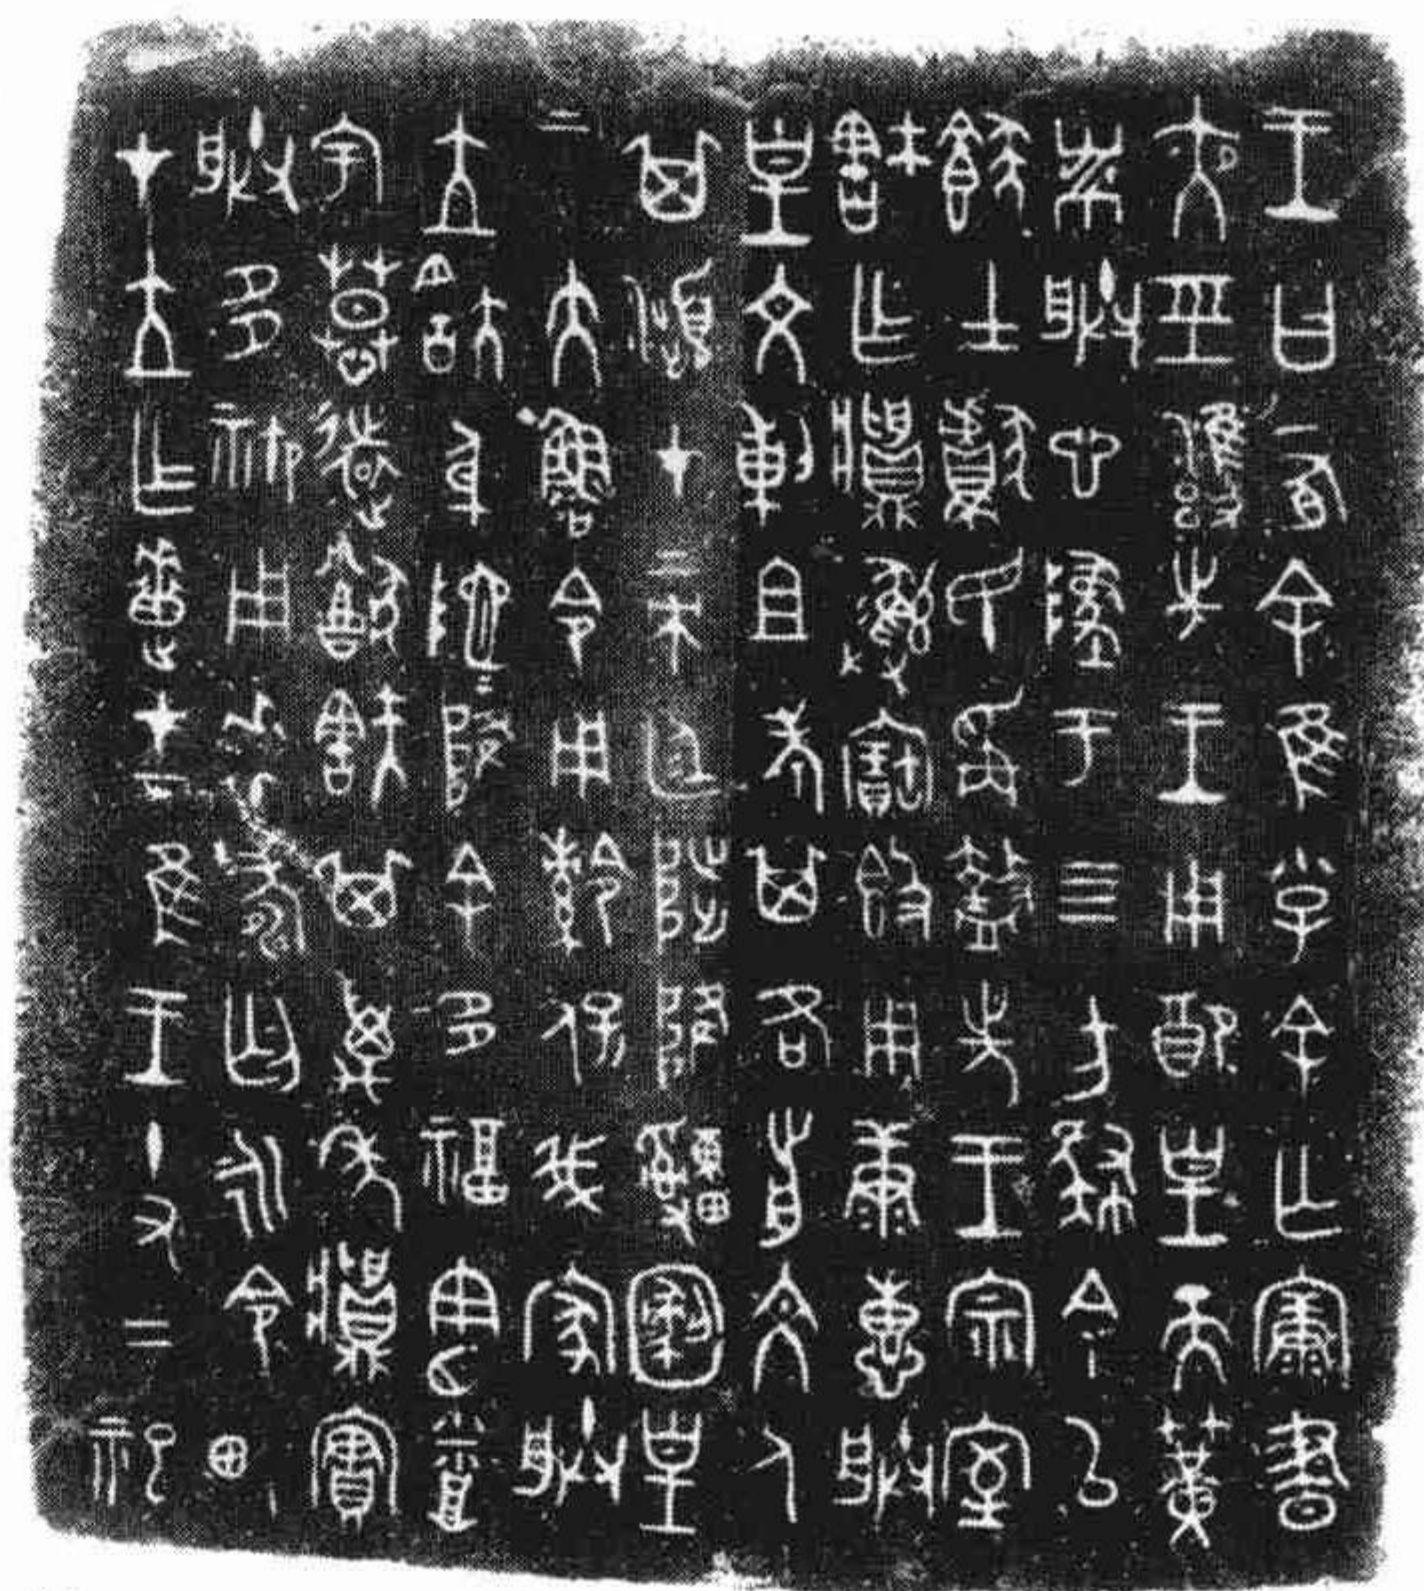 王曰有余隹小子余亡康晝
夜巠雍先王用配皇天簧
黹朕心墜于四方肆余以
𩛥士獻民爯盩先王宗室
㝬乍𩰬彝寶簋用康惠朕
皇文剌且考其各前文人
其瀕才帝廷陟降申皇
帝大魯令用保我家朕
立㝬身阤=降余多福憲烝
宇慕遠猷㝬其萬年𩰬實
朕多禦用𠦪壽匄永令畯
才立乍疐才下隹王十又二祀